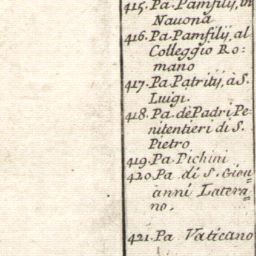 415. Pa. Pamfilij, in
Nauona
416. Pa. Pamfilij, al
Colleggio Ro=
mano
417. Pa Patritij, à S.
Luigi.
418. Pa. de Padri Pe=
nitentieri di S.
Pietro
419. Pa Pichini
420. Pa di S. Giou=
anni Latera=
no.
421. Pa Vaticano